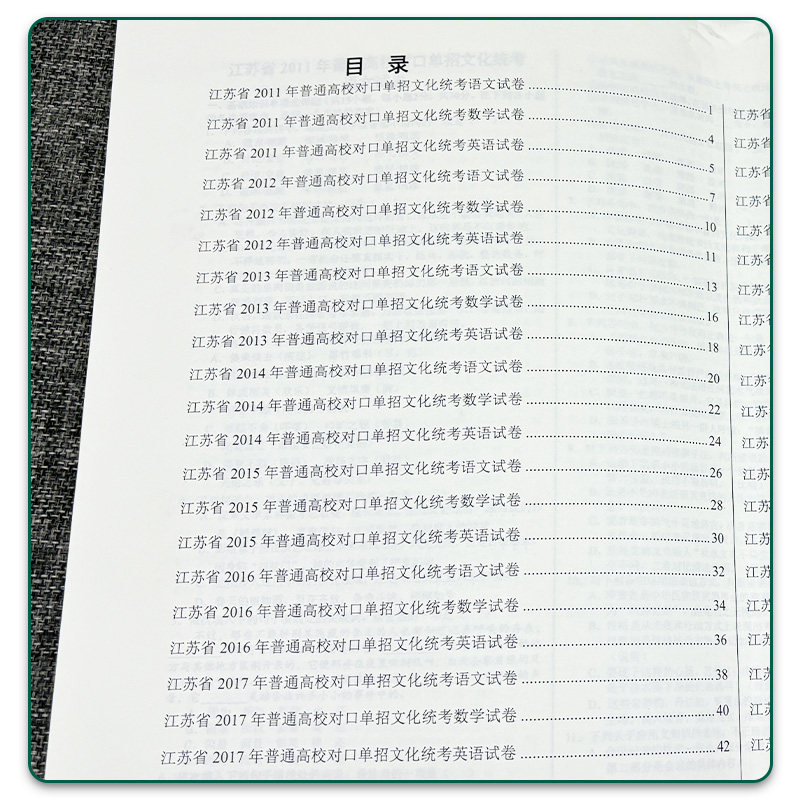 目 录
江苏省 2011 年普通高校对口单招文化统考语文试卷 1
江苏省 2011 年普通高校对口单招文化统考数学试卷 4
江苏省 2011 年普通高校对口单招文化统考英语试卷 5
江苏省 2012 年普通高校对口单招文化统考语文试卷 7
江苏省 2012 年普通高校对口单招文化统考数学试卷 10
江苏省 2012 年普通高校对口单招文化统考英语试卷 11
江苏省 2013 年普通高校对口单招文化统考语文试卷 13
江苏省 2013 年普通高校对口单招文化统考数学试卷 16
江苏省 2013 年普通高校对口单招文化统考英语试卷 18
江苏省 2014 年普通高校对口单招文化统考语文试卷 20
江苏省 2014 年普通高校对口单招文化统考数学试卷 22
江苏省 2014 年普通高校对口单招文化统考英语试卷 24
江苏省 2015 年普通高校对口单招文化统考语文试卷 26
江苏省 2015 年普通高校对口单招文化统考数学试卷 28
江苏省 2015 年普通高校对口单招文化统考英语试卷 30
江苏省 2016 年普通高校对口单招文化统考语文试卷 32
江苏省 2016 年普通高校对口单招文化统考数学试卷 34
江苏省 2016 年普通高校对口单招文化统考英语试卷 36
江苏省 2017 年普通高校对口单招文化统考语文试卷 38
江苏省 2017 年普通高校对口单招文化统考数学试卷 40
江苏省 2017 年普通高校对口单招文化统考英语试卷 42
江苏省
江苏省
江苏省
江苏省
江苏省
江苏省
江苏省
江苏省
江苏省
江苏
江苏
江苏
江苏
江苏
江苏
江苏
江苏
江苏
江苏
江苏
江苏